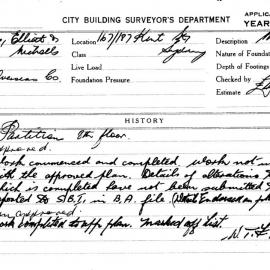 CITY BUILDING SURVEYOR'S DEPARTMENT
APPLICA
YEAR
Elliott &
Michaels
Location 167/187 Kent St
Sydney
Class
Live Load
Foundation Pressure
Co.
Description
Nature of Foundation
Depth of Footings
Checked by
Estimate
HISTORY
Partition floor.
approved.
Work commenced and completed work not
with the approved plan. Details of alterations
which is completed have not been submitted
reported to S.B.I. in B.A. file
approved.
Work completed to app plan. Marked off list.